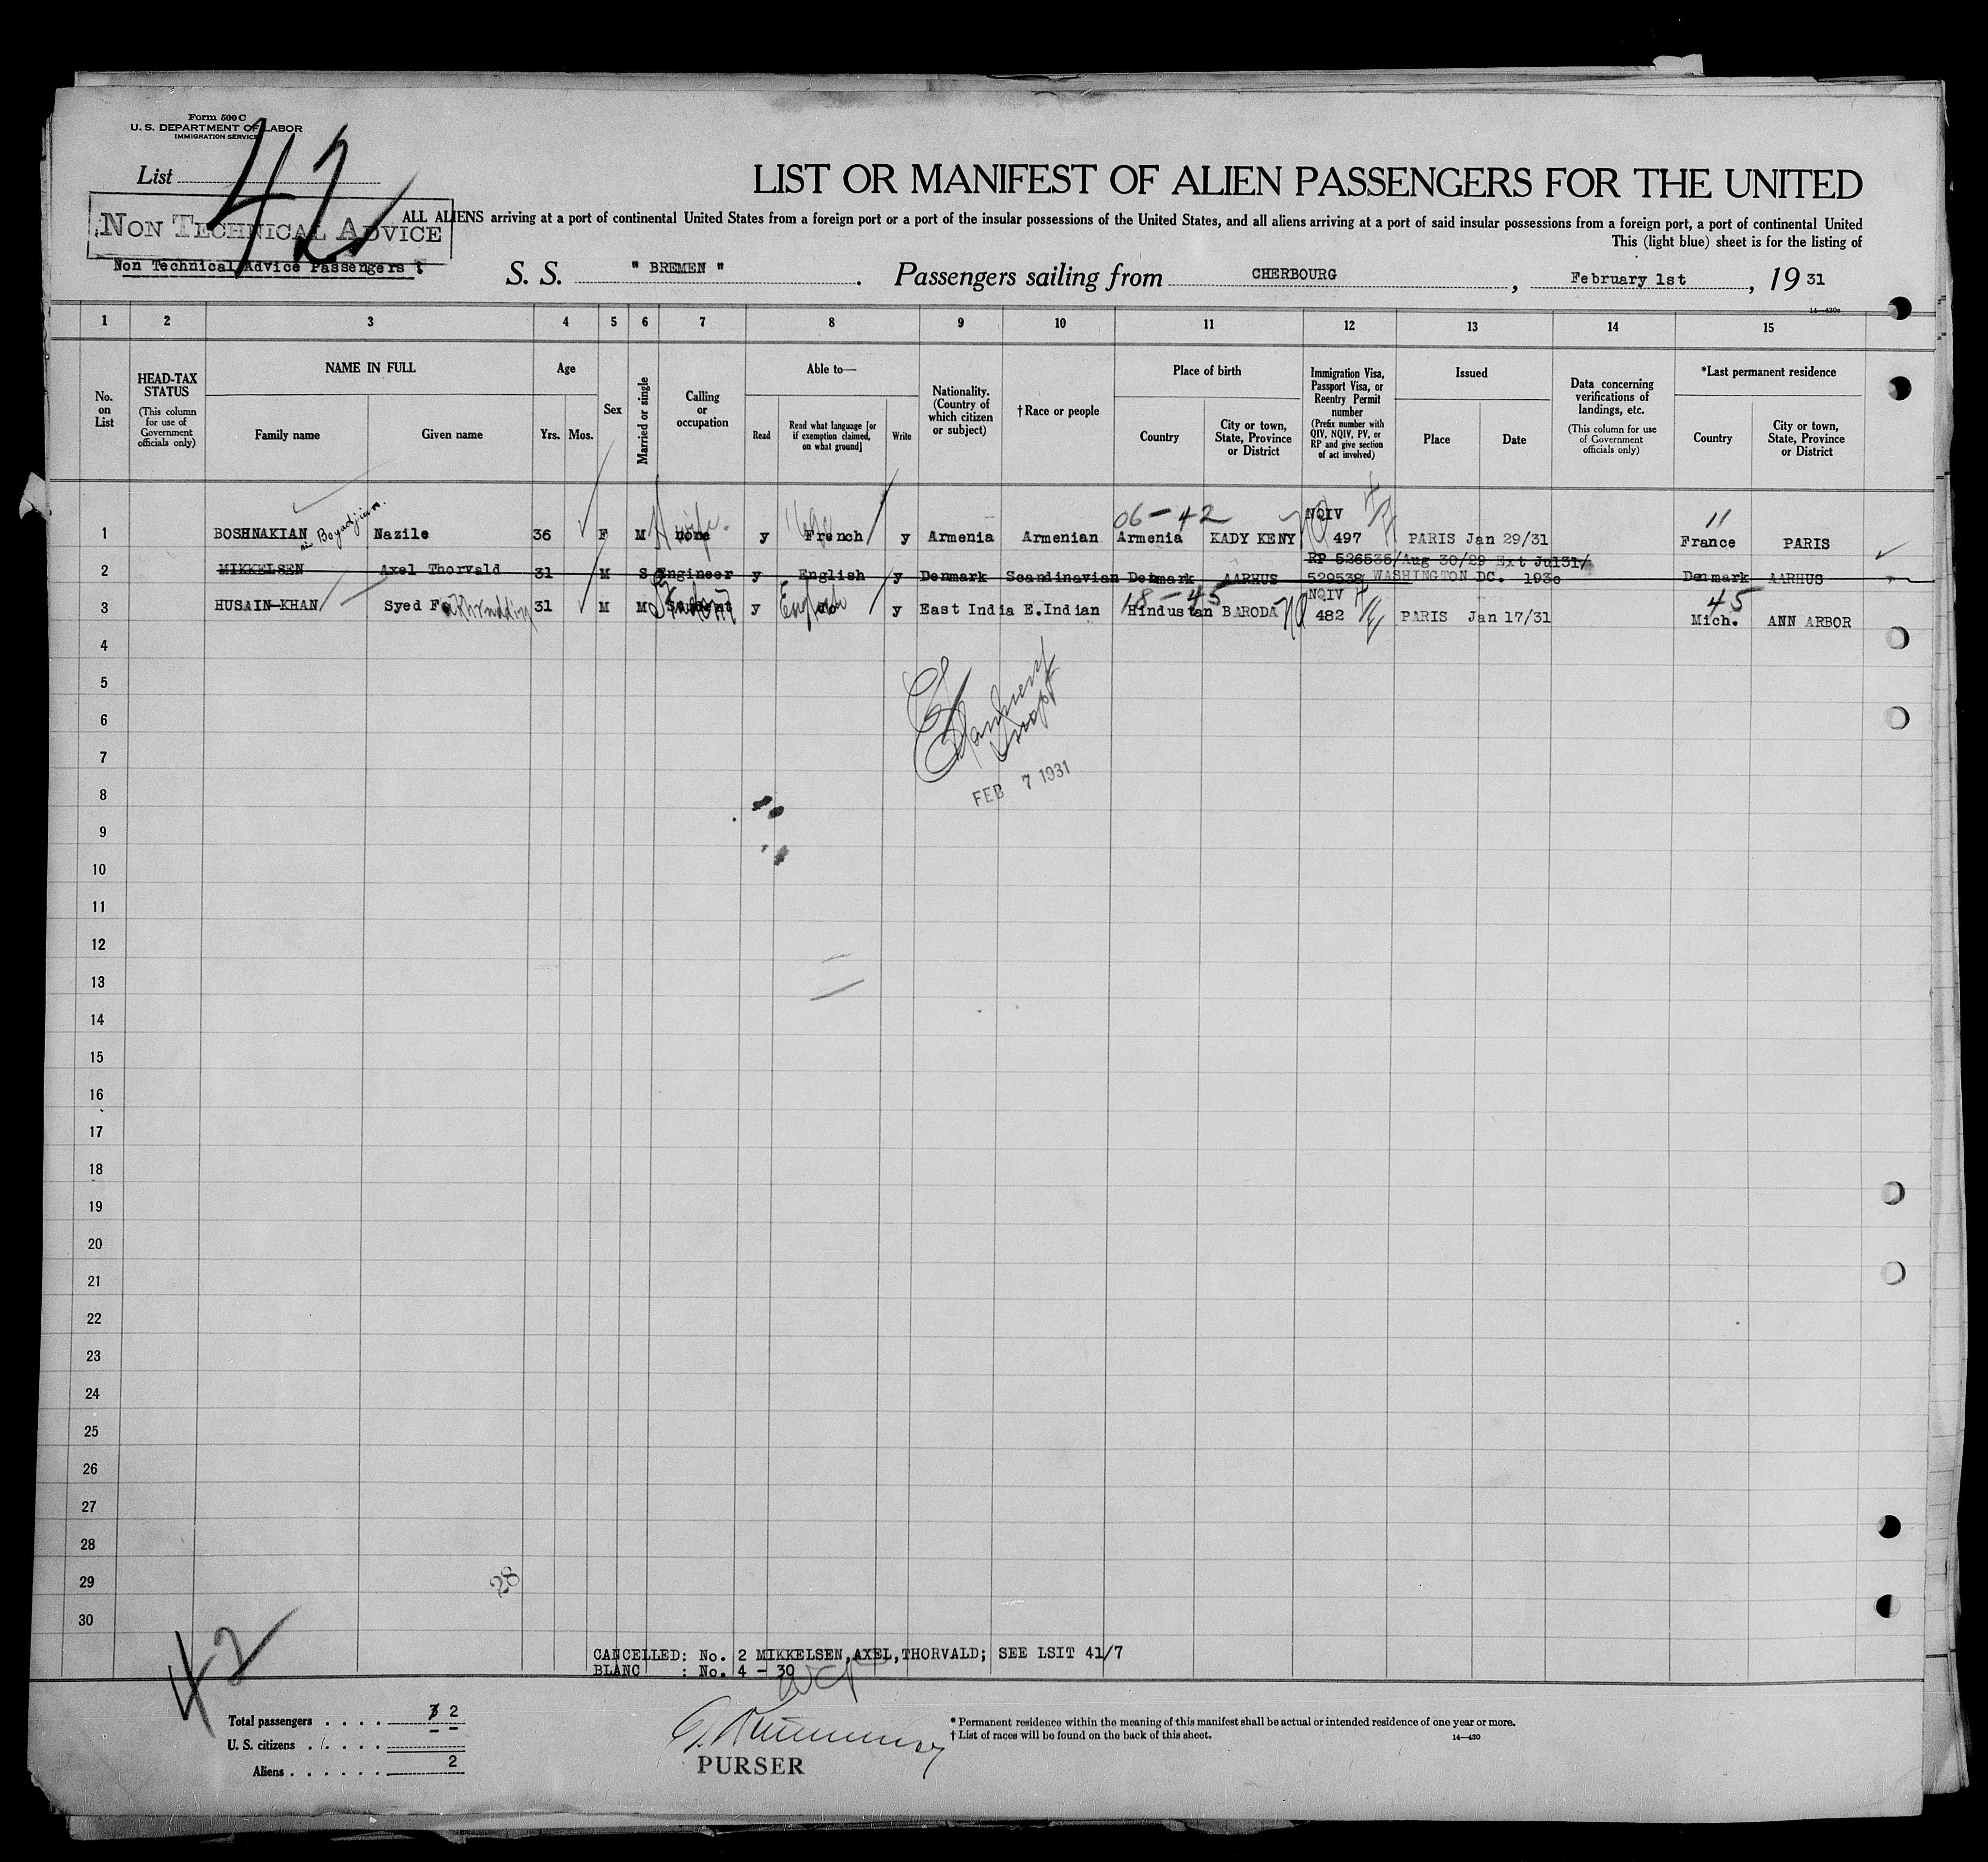 Form 500 C
U. S. DEPARTMENT OF LABOR
IMMIGRATION SERVICE
List 42
NON TECHNICAL ADVICE
Non Technical Advice Passengers
LIST OR MANIFEST OF ALIEN PASSENGERS FOR THE UNITED
ALL ALIENS arriving at a port of continental United States from a foreign port or a port of the insular possessions of the United States, and all aliens arriving at a port of said insular possessions from a foreign port, a port of continental United
This (light blue) sheet is for the listing of
S. S. " BREMEN " . Passengers sailing from CHERBOURG , February 1st , 19 31
14—430c
1 2 3 4 5 6 7 8 9 10 11 12 13 14 15
No. on List
HEAD-TAX STATUS (This column for use of Government officials only)
NAME IN FULL
Family name Given name
Age
Yrs. Mos.
Sex
Married or single
Calling or occupation
Able to—
Read
Read what language [or if exemption claimed, on what ground]
Write
Nationality. (Country of which citizen or subject)
†Race or people
Place of birth
Country
City or town, State, Province or District
Immigration Visa, Passport Visa, or Reentry Permit number (Prefix number with QIV, NQIV, PV, or RP and give section of act involved)
Issued
Place Date
Data concerning verifications of landings, etc. (This column for use of Government officials only)
*Last permanent residence
Country
City or town, State, Province or District
06-42 NQIV 11
1 BOSHNAKIAN Boyadjian Nazile 36 F M none wife y French y Armenia Armenian Armenia KADY KENY 497 PARIS Jan 29/31 France PARIS
RP 526535/Aug 30/29 Ext Jul31/
2 MIKKELSEN Axel Thorvald 31 M S Engineer y English y Denmark Scandinavian Denmark AARHUS 529538 WASHINGTON DC. 1930 Denmark AARHUS
18-45 NQIV 45
3 HUSAIN-KHAN Syed Fakhruddin 31 M M Student y do English y East India E.Indian Hindustan BARODA 482 PARIS Jan 17/31 Mich. ANN ARBOR
4
5
6
7
FEB 7 1931
8
9
10
11
12
13
14
15
16
17
18
19
20
21
22
23
24
25
26
27
28
29
28
30
42
CANCELLED: No. 2 MIKKELSEN,AXEL,THORVALD; SEE LSIT 41/7
BLANC : No. 4 - 30
Total passengers . . . . 3 2
U. S. citizens . . . . .
Aliens . . . . . . 2
PURSER
* Permanent residence within the meaning of this manifest shall be actual or intended residence of one year or more.
† List of races will be found on the back of this sheet.
14—430